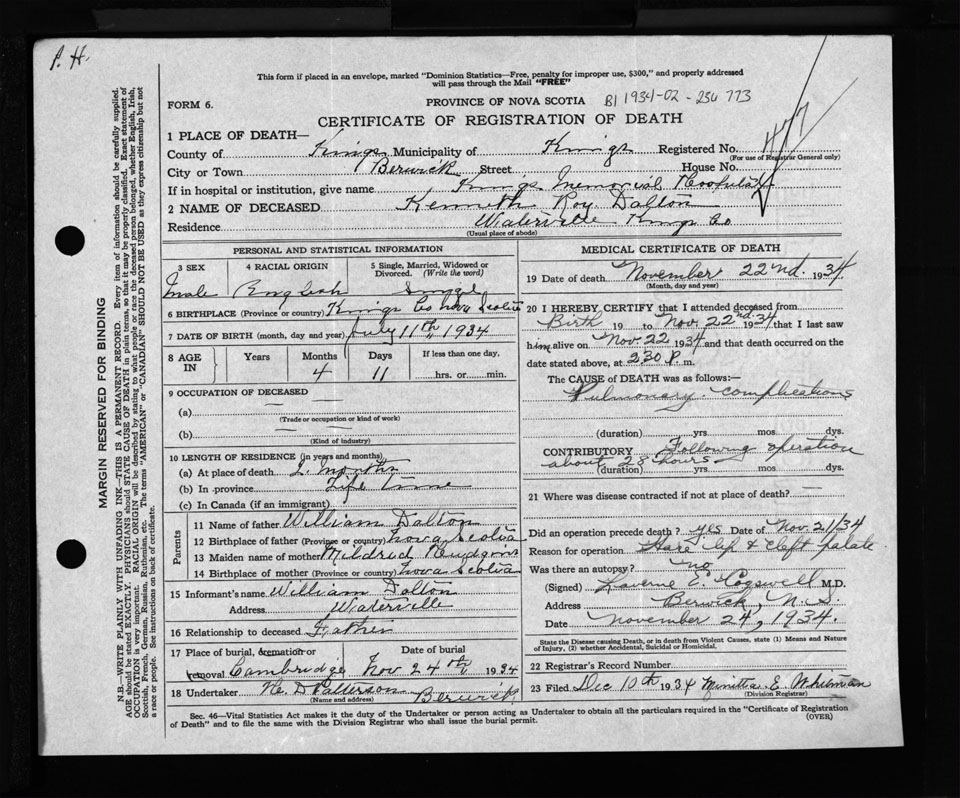 P. H.
This form if placed in an envelope, marked "Dominion Statistics—Free, penalty for improper use, $300," and properly addressed
will pass through the Mail "FREE"
FORM 6.
PROVINCE OF NOVA SCOTIA
B1 1934-02-230 773
CERTIFICATE OF REGISTRATION OF DEATH
477
1 PLACE OF DEATH—
County of Kings Municipality of Kings Registered No.
(For use of Registrar General only)
City or Town Berwick Street House No.
If in hospital or institution, give name Kings Memorial Hospital
2 NAME OF DECEASED Kenneth Roy Dalton
Residence Waterville Kings Co
(Usual place of abode)
PERSONAL AND STATISTICAL INFORMATION
3 SEX 4 RACIAL ORIGIN 5 Single, Married, Widowed or
Divorced. (Write the word)
male English Single
6 BIRTHPLACE (Province or country) Kings Co Nova Scotia
7 DATE OF BIRTH (month, day and year) July 11th, 1934
8 AGE IN Years Months Days If less than one day,
4 11 hrs. or min.
9 OCCUPATION OF DECEASED
(a)
(Trade or occupation or kind of work)
(b)
(Kind of industry)
10 LENGTH OF RESIDENCE (in years and months)
(a) At place of death months
(b) In province Life time
(c) In Canada (if an immigrant)
Parents
11 Name of father William Dalton
12 Birthplace of father (Province or country) Nova Scotia
13 Maiden name of mother Mildred
14 Birthplace of mother (Province or country) Nova Scotia
15 Informant's name William Dalton
Address Waterville
16 Relationship to deceased Father
17 Place of burial, cremation or Date of burial
removal Cambridge Nov 24th 1934
18 Undertaker H. D Patterson Berwick
(Name and address)
MEDICAL CERTIFICATE OF DEATH
19 Date of death November 22nd. 1934
(Month, day and year)
20 I HEREBY CERTIFY that I attended deceased from
Birth 19 to Nov. 22nd 1934 that I last saw
him alive on Nov. 22 1934 and that death occurred on the
date stated above, at 2.30 P. m.
The CAUSE of DEATH was as follows:—
Pulmonary complications
(duration) yrs. mos. dys.
CONTRIBUTORY Following operation
about 28 hours
(duration) yrs. mos. dys.
21 Where was disease contracted if not at place of death?
Did an operation precede death? yes Date of Nov. 21/34
Reason for operation Hare lip & cleft palate
Was there an autopsy? no
(Signed) Laverne E. Cogswell M.D.
Address Berwick, N.S.
Date November 24, 1934.
State the Disease causing Death, or in death from Violent Causes, state (1) Means and Nature
of Injury, (2) whether Accidental, Suicidal or Homicidal.
22 Registrar's Record Number
23 Filed Dec 10th 1934 Minetta E. Whitman
(Division Registrar)
Sec. 46—Vital Statistics Act makes it the duty of the Undertaker or person acting as Undertaker to obtain all the particulars required in the "Certificate of Registration
of Death" and to file the same with the Division Registrar who shall issue the burial permit.
(OVER)
MARGIN RESERVED FOR BINDING
N.B.—WRITE PLAINLY WITH UNFADING INK—THIS IS A PERMANENT RECORD. Every item of information should be carefully supplied.
AGE should be stated EXACTLY. PHYSICIANS should STATE CAUSE OF DEATH in plain terms, so that it may be properly classified. Exact statement of
OCCUPATION is very important. RACIAL ORIGIN will be described by stating to what people or race the deceased person belonged, whether English, Irish,
Scottish, French, German, Russian, Ruthenian, etc. The terms "AMERICAN" or "CANADIAN" SHOULD NOT BE USED as they express citizenship but not
a race or people. See instructions on back of certificate.